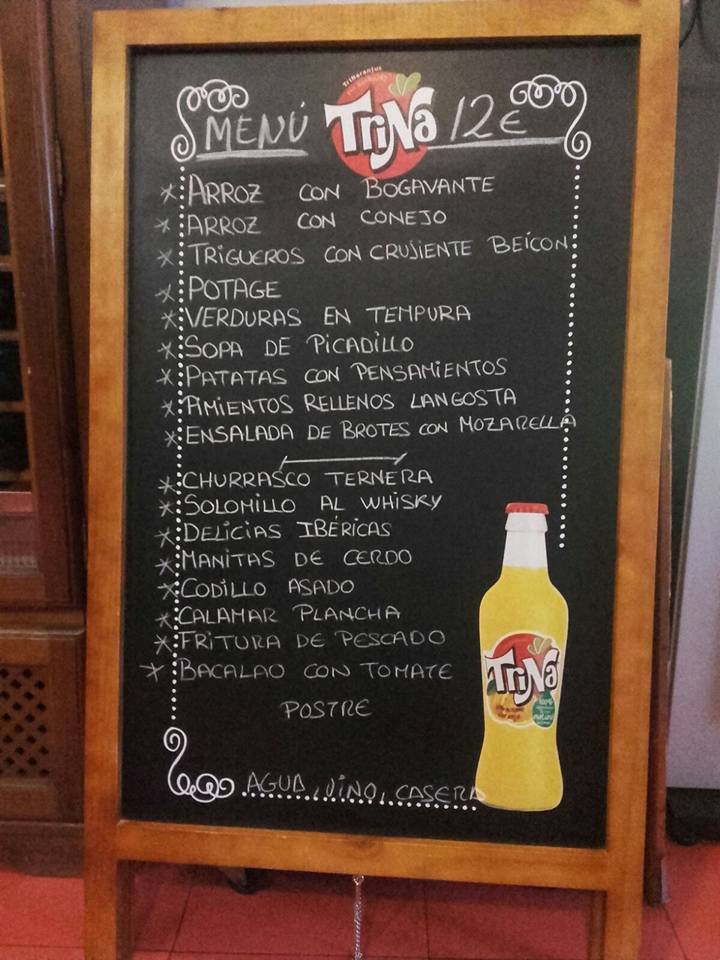 MENÚ TriNa 12€
* ARROZ CON BOGAVANTE
* ARROZ CON CONEJO
* TRIGUEROS CON CRUJIENTE BEICON
* POTAGE
* VERDURAS EN TEMPURA
* SOPA DE PICADILLO
* PATATAS CON PENSAMIENTOS
* PIMIENTOS RELLENOS LANGOSTA
* ENSALADA DE BROTES CON MOZARELLA
* CHURRASCO TERNERA
* SOLOMILLO AL WHISKY
* DELICIAS IBÉRICAS
* MANITAS DE CERDO
* CODILLO ASADO
* CALAMAR PLANCHA
* FRITURA DE PESCADO
* BACALAO CON TOMATE
POSTRE
TriNa
AGUA, VINO, CASERA